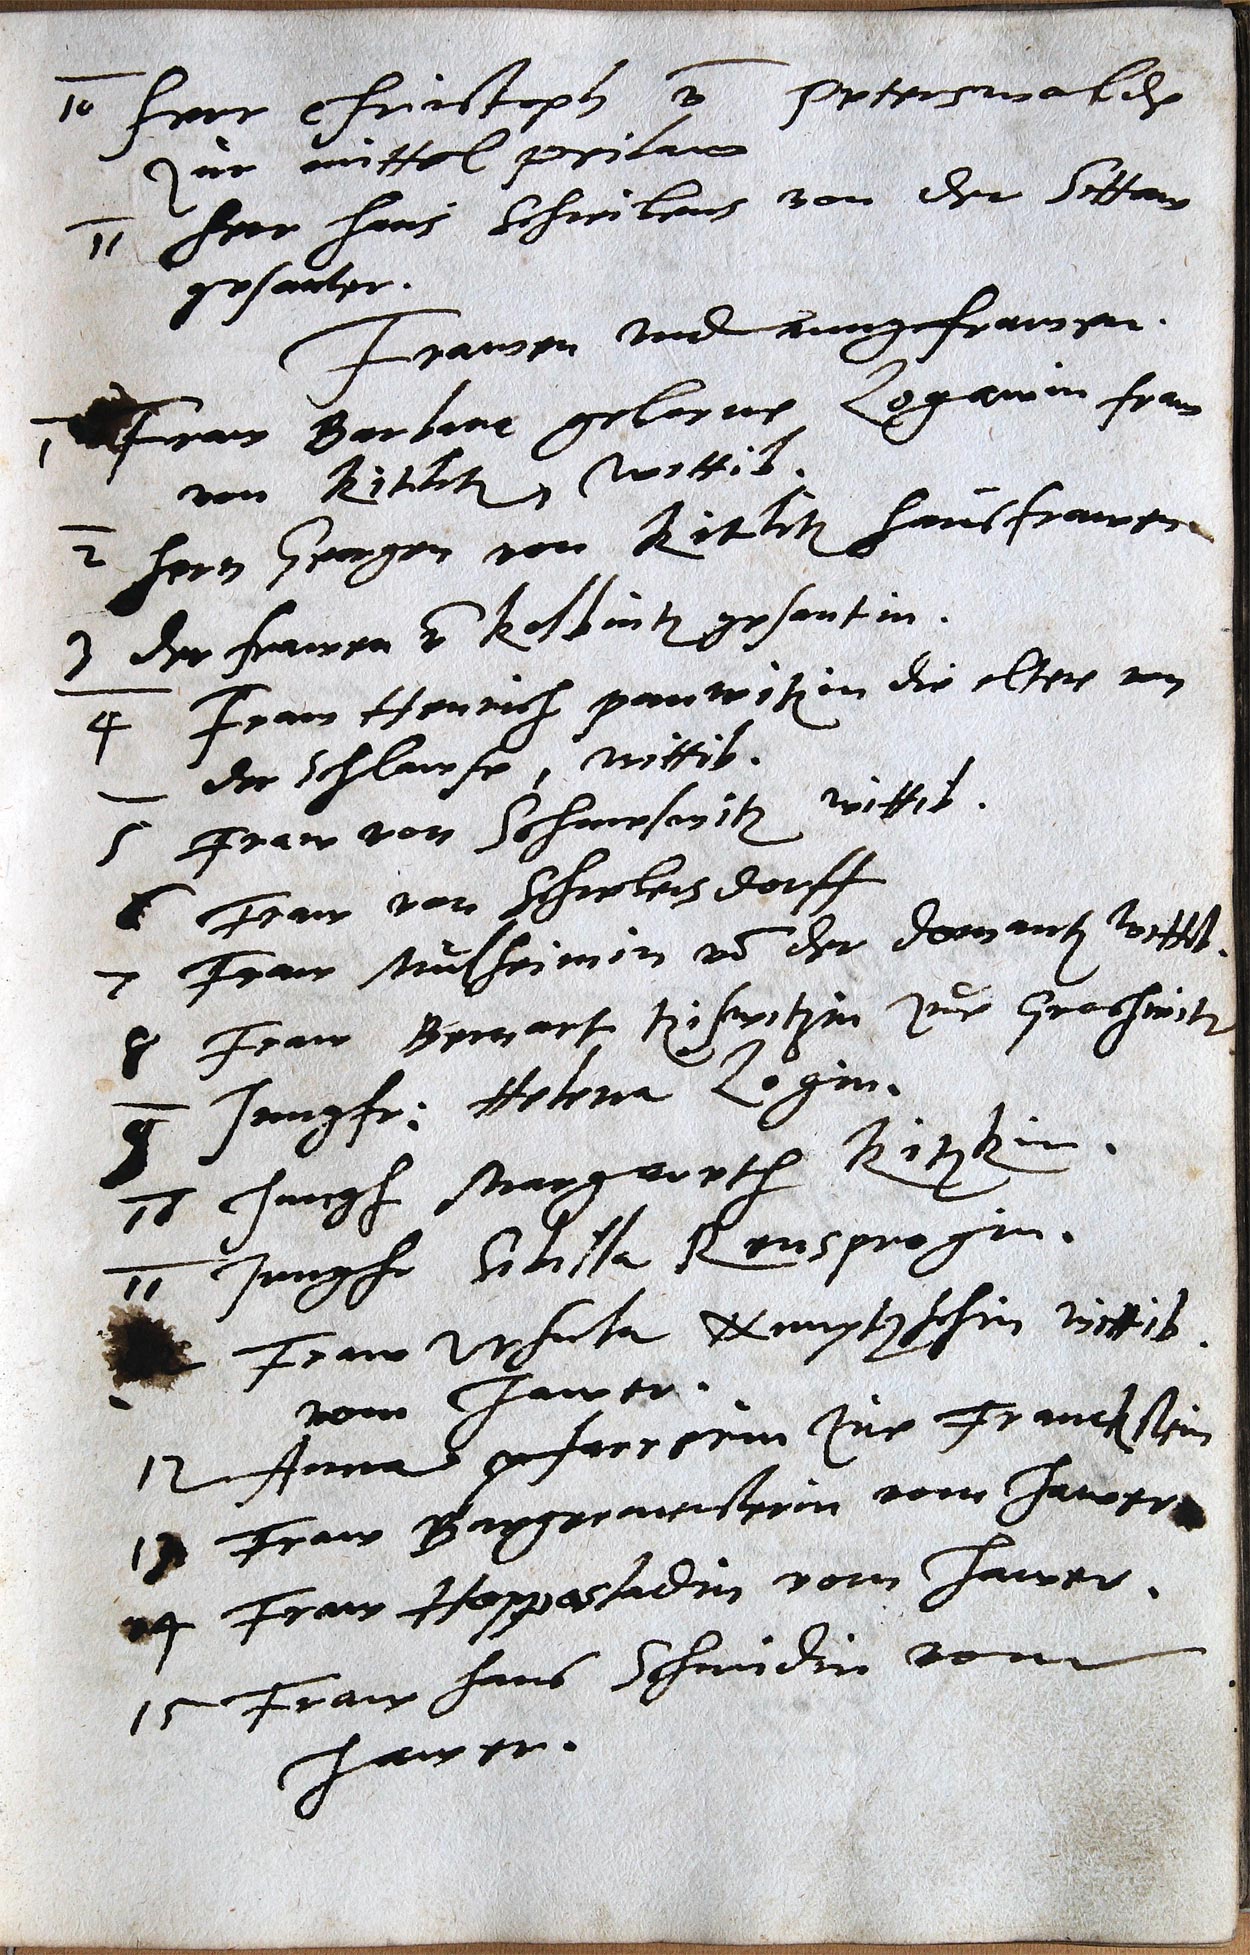 10 Herr Christoph v Peterswalde
zur mittel peilaw
11 Herr Hans Scheibens von der Sittaw
gesanter.
Frawen und Jungefrawen.
1 Fraw Barbara geborne Logawin fraw
von Kitlitz, wittib.
2 Hern Georgen von Kitlitz Hausfrawen
3 der frawen v Kolbnitz gesantin.
4 Fraw Henrich panwitzin die eltere von
der Schlawse, wittib.
5 Fraw von Schweinitz wittib.
6 Fraw von Schwelensdorff
7 Fraw Mülheimin vo der domantz wittib.
8 Fraw Bernart tzischwitzin zur
9 Jungfr: Helena Login.
10 Jungf Margareth Kitzkin.
11 Jungfr Sibilla Renspergin.
Fraw Ursula wittib.
vom Jawer.
12 Anna pfarrerin zue Franckstein
13 Fraw Burgermeisterin vom Jawer
14 Fraw Hoppestadin vom Jawer.
15 Fraw Hans Schmidin vom
Jawer.